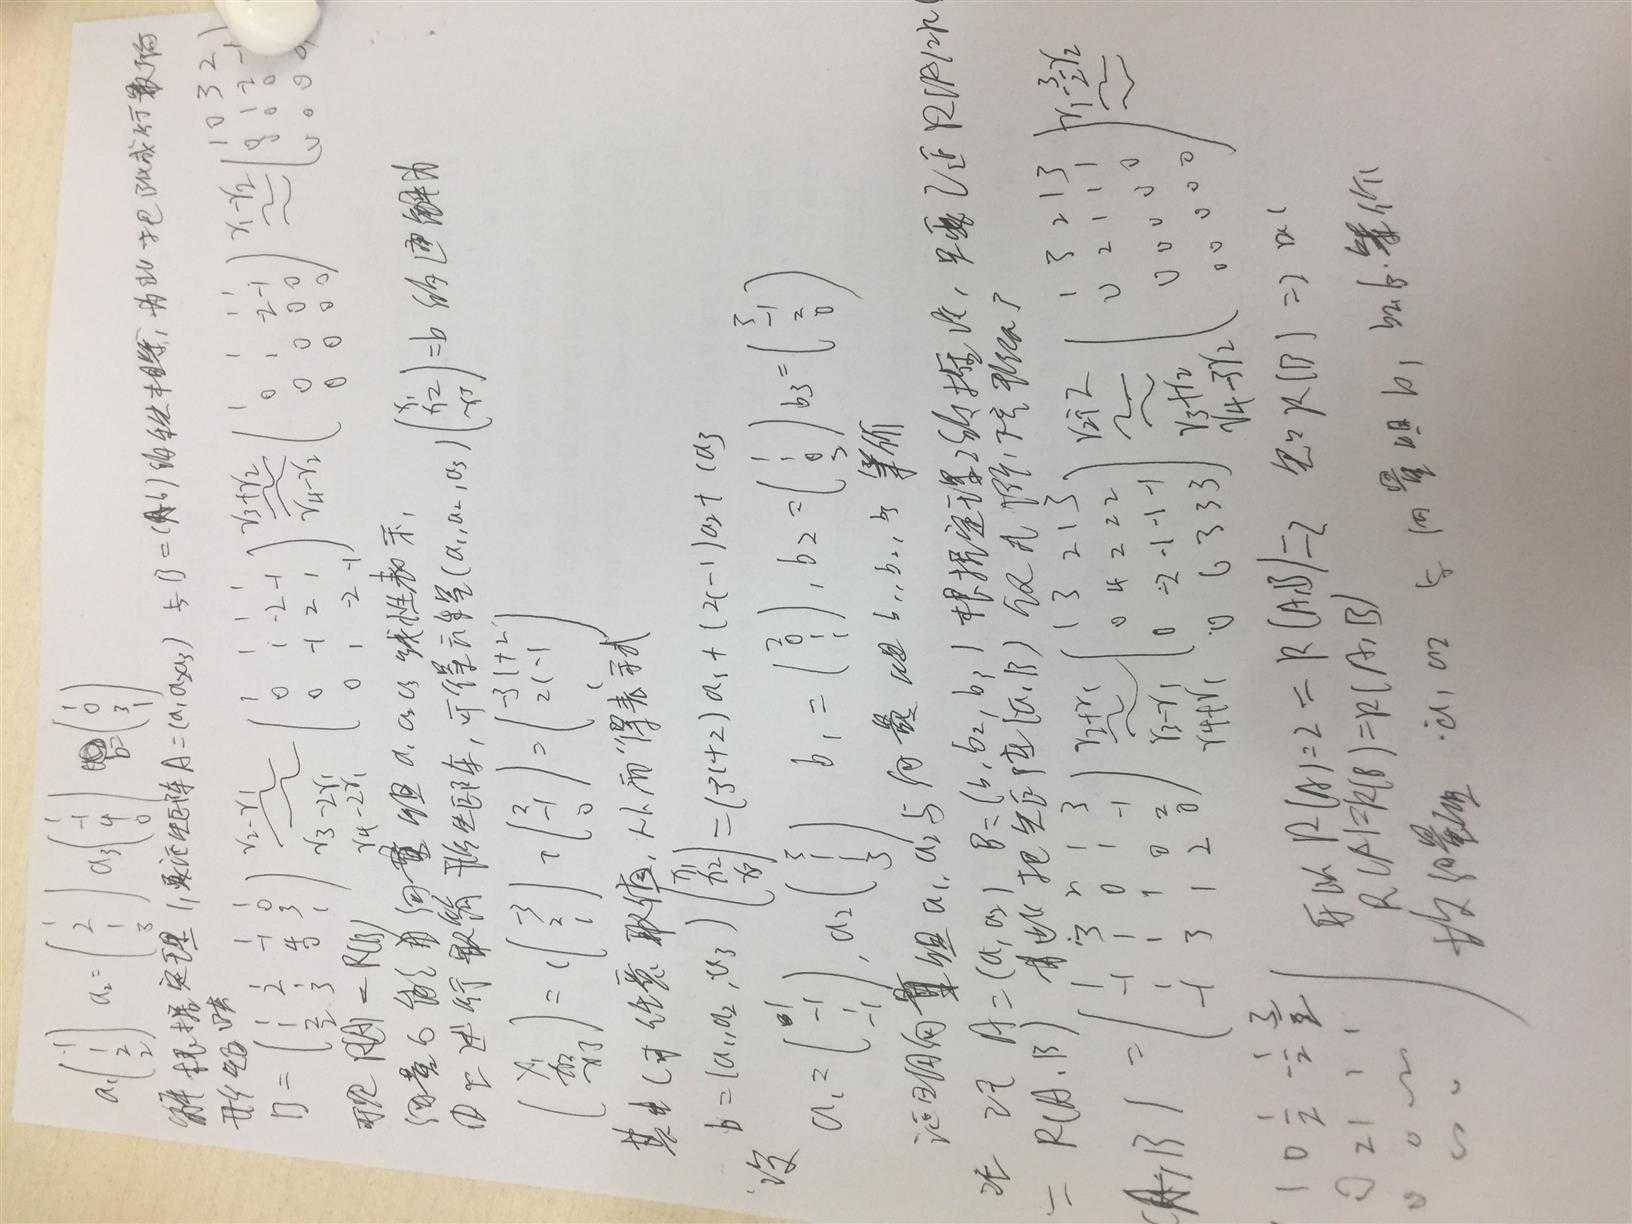 a₁(1 1 2 2) a₂=(1 2 1 3) a₃(1 -1 4 0) b=(1 0 3 1)
解 根据定理1,要证矩阵A=(a₁a₂a₃)与B=(A,b)的秩相等,为此把B化成行最简
形
B= (1 1 1 1 / 1 2 -1 0 / 2 1 4 3 / 2 3 0 1) r₂-r₁ r₃-2r₁ r₄-2r₁ (1 1 1 1 / 0 1 -2 -1 / 0 -1 2 1 / 0 1 -2 -1) r₃+r₂ r₄-r₂ (1 1 1 1 / 0 1 -2 -1 / 0 0 0 0 / 0 0 0 0) r₁-r₂ (1 0 3 2 / 0 1 -2 -1 / 0 0 0 0 / 0 0 0 0
可见 R(A)=R(B)
向量b能由向量组a₁ a₂ a₃线性表示,
由上述行最简形矩阵,可得方程(a₁,a₂,a₃)(x₁ x₂ x₃)=b的通解为
(x₁ x₂ x₃)=c(-3 2 1)+(2 -1 0)=(-3c+2 2c-1 c)
其中c可任意取值,从而得表示式
b=(a₁,a₂,a₃)(x₁ x₂ x₃)=(-3c+2)a₁+(2c-1)a₂+ca₃
设
a₁=(1 -1 1 -1), a₂(3 1 1 3) b₁=(2 0 1 1), b₂=(1 1 0 2) b₃=(3 -1 2 0)
证明向量组a₁,a₂与向量组b₁,b₂,b₃等价
证 记A=(a₁a₂) B=(b₁b₂,b₃) 根据定理2的推论,只要证R(A)
=R(A,B) 为此把矩阵(A,B)
(A,B)= (1 3 2 1 3 / -1 1 0 1 -1 / 1 1 1 0 2 / -1 3 1 2 0) r₂+r₁ r₃-r₁ r₄+r₁ (1 3 2 1 3 / 0 4 2 2 2 / 0 -2 -1 -1 -1 / 0 6 3 3 3) r₂÷2 r₃+r₂ r₄-3r₂ (1 3 2 1 3 / 0 2 1 1 1 / 0 0 0 0 0 / 0 0 0 0 0) r₁-3/2r₂
所以 R(A)=2=R(A,B)=2
R(A)=R(B)=R(A,B)
故向量组 a₁ a₂ 与向量组b₁ b₂ b₃等价